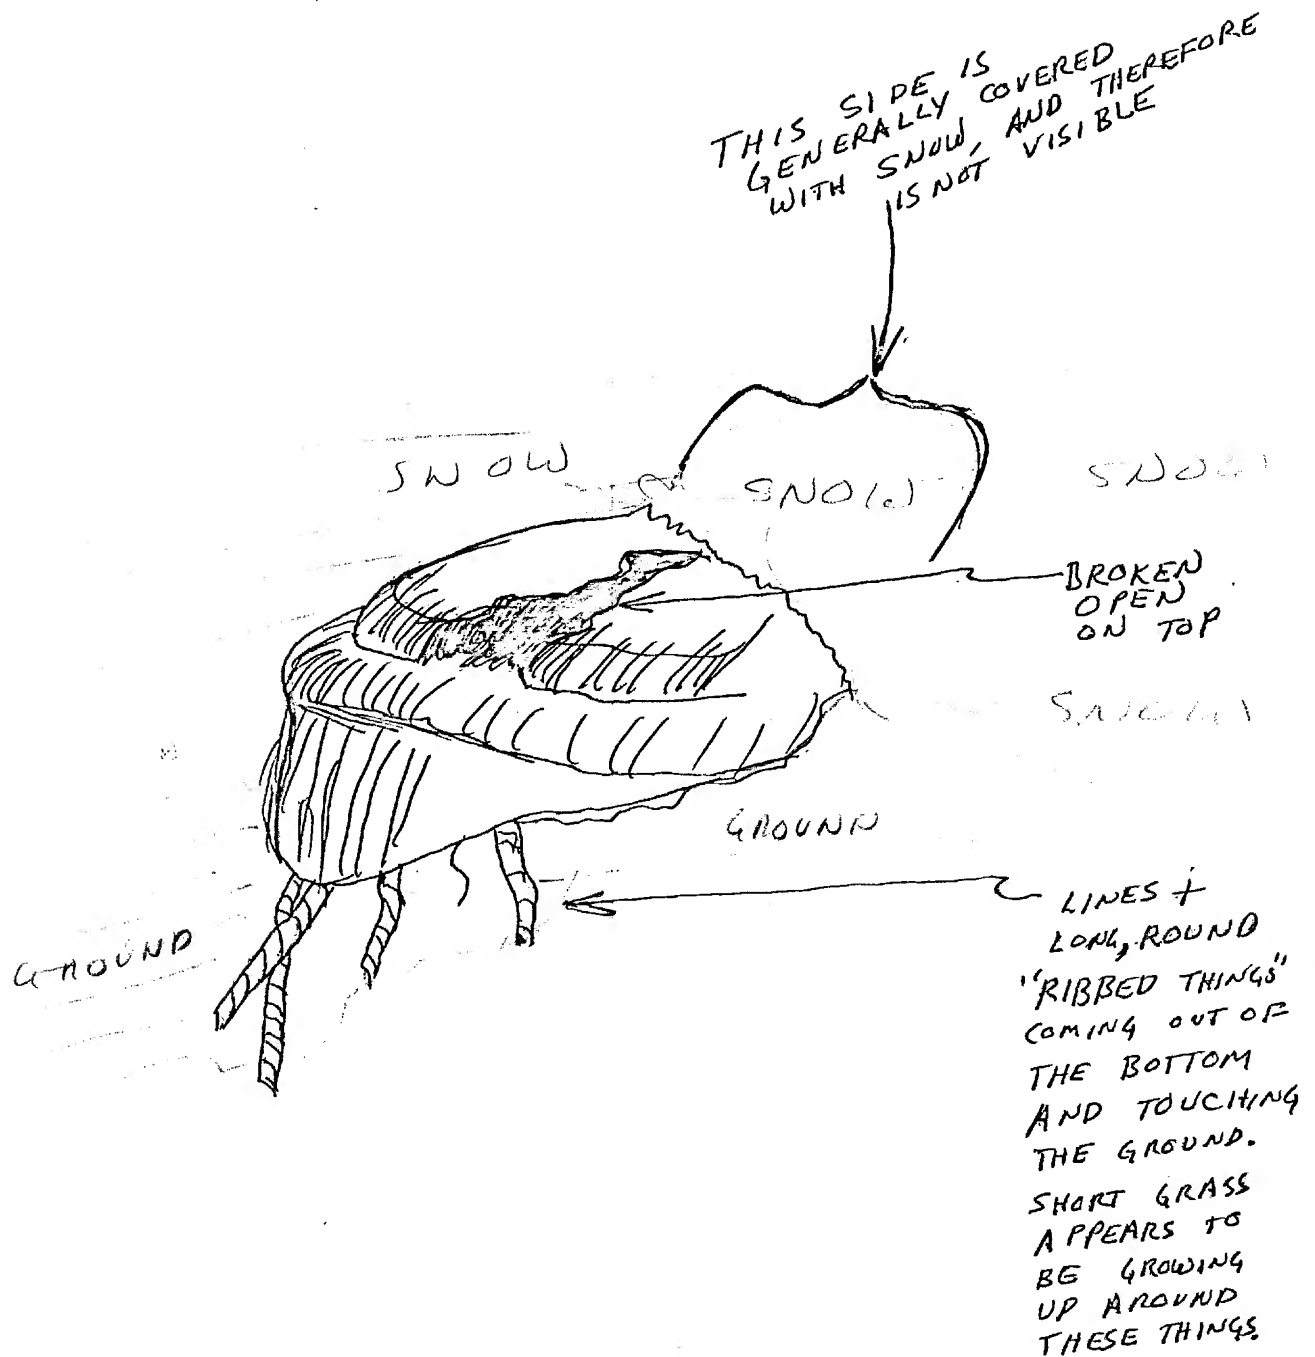 THIS SIDE IS
GENERALLY COVERED
WITH SNOW, AND THEREFORE
IS NOT VISIBLE
SNOW
SNOW
BROKEN
OPEN
ON TOP
GROUND
GROUND
LINES +
LONG, ROUND
"RIBBED THINGS"
COMING OUT OF
THE BOTTOM
AND TOUCHING
THE GROUND.
SHORT GRASS
APPEARS TO
BE GROWING
UP AROUND
THESE THINGS.